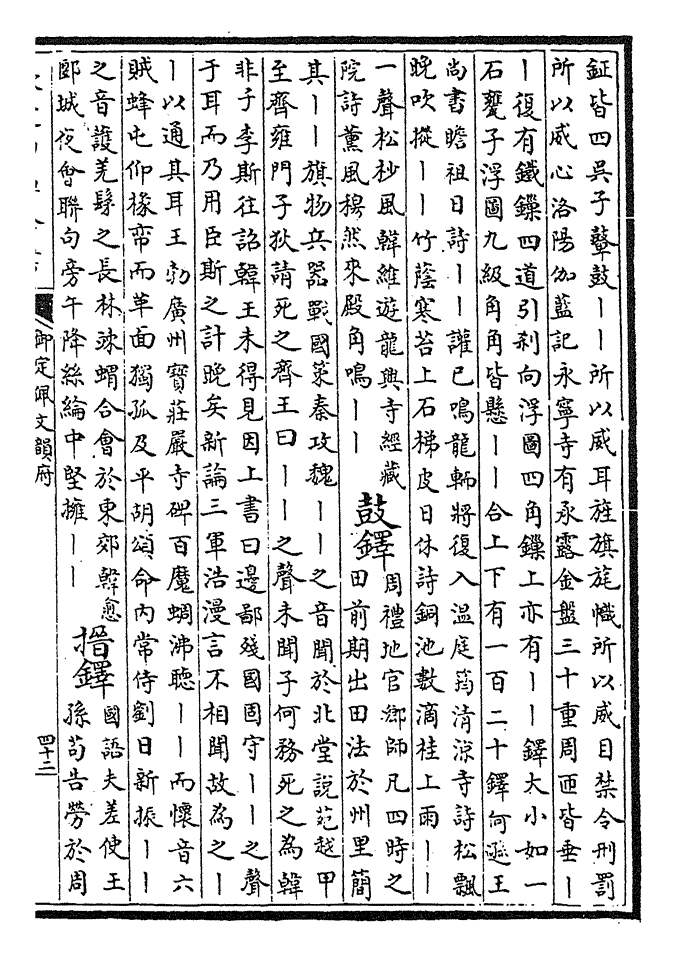 鉦皆四吳子鼙鼓丨丨所以威耳旌旗旄幟所以威目禁令刑罰
所以威心洛陽伽藍記永寧寺有承露金盤三十重周匝皆垂丨
丨復有鐵鏁四道引刹向浮圖四角鏁上亦有丨丨鐸大小如一
石甕子浮圖九級角角皆懸丨丨合上下有一百二十鐸何遜王
尚書瞻祖日詩丨丨讙已鳴龍軜將復入溫庭筠清涼寺詩松飄
晚吹摐丨丨竹蔭寒苔上石梯皮日休詩銅池數滴桂上雨丨丨
一聲松杪風韓維遊龍興寺經藏
院詩薰風穆然來殿角鳴丨丨
鼓鐸
周禮地官鄉師凡四時之
田前期出田法於州里簡
其丨丨旗物兵器戰國策秦攻魏丨丨之音聞於北堂說苑越甲
至齊雍門子狄請死之齊王曰丨丨之聲未聞子何務死之為韓
非子李斯往詔韓王未得見因上書曰邊鄙殘國固守丨丨之聲
于耳而乃用臣斯之計晚矣新論三軍浩漫言不相聞故為之丨
丨以通其耳王勃廣州寶莊嚴寺碑百魔蜩沸聽丨丨而懷音六
賊蜂屯仰椽帟而革面獨孤及平胡頌命內常侍劉日新振丨丨
之音護羌髳之長林蹂蝟合會於東郊韓愈
郾城夜會聯句旁午降絲綸中堅擁丨丨
搢鐸
國語夫差使王
孫茍告勞於周
御定佩文韻府
四十二